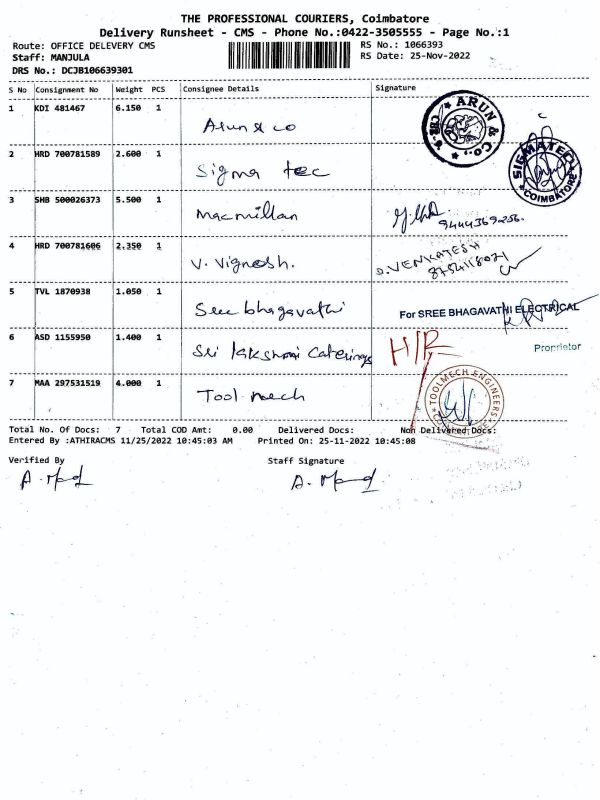 THE PROFESSIONAL COURIERS, Coimbatore
Delivery Runsheet - CMS - Phone No.:0422-3505555 - Page No.:1
Route: OFFICE DELEVERY CMS
RS No.: 1066393
Staff: MANJULA
RS Date: 25-Nov-2022
DRS No.: DCJB106639301
S No Consignment No Weight PCS Consignee Details Signature
1 KDI 481467 6.150 1 Arun & co
ARUN & Co.,
2 HRD 700781589 2.600 1 Sigma tec
SIGMATECH
COIMBATORE
3 SHB 500026373 5.500 1 Macmillan
9444369256.
4 HRD 700781606 2.350 1 V. Vignesh.
D.VENKATESH
8754118071
5 TVL 1870938 1.050 1 Sree bhagavathi
For SREE BHAGAVATHI ELECTRICAL
6 ASD 1155950 1.400 1 Sri lakshmi Caterings
Proprietor
7 MAA 297531519 4.000 1 Tool mech
TOOLMECH ENGINEERS
Total No. Of Docs: 7 Total COD Amt: 0.00 Delivered Docs: Non Delivered Docs:
Entered By :ATHIRACMS 11/25/2022 10:45:03 AM Printed On: 25-11-2022 10:45:08
Verified By Staff Signature